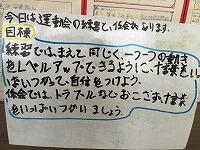 今日は、運動会の練習で、係会があります。
目標
練習では、まえと同じく、一つ一つの動き
をレベルアップできるように、言葉を
いつかって、自信をつけよう。
係会では、トラブルなどおこさず、言葉
をいっぱいつかいましょう。